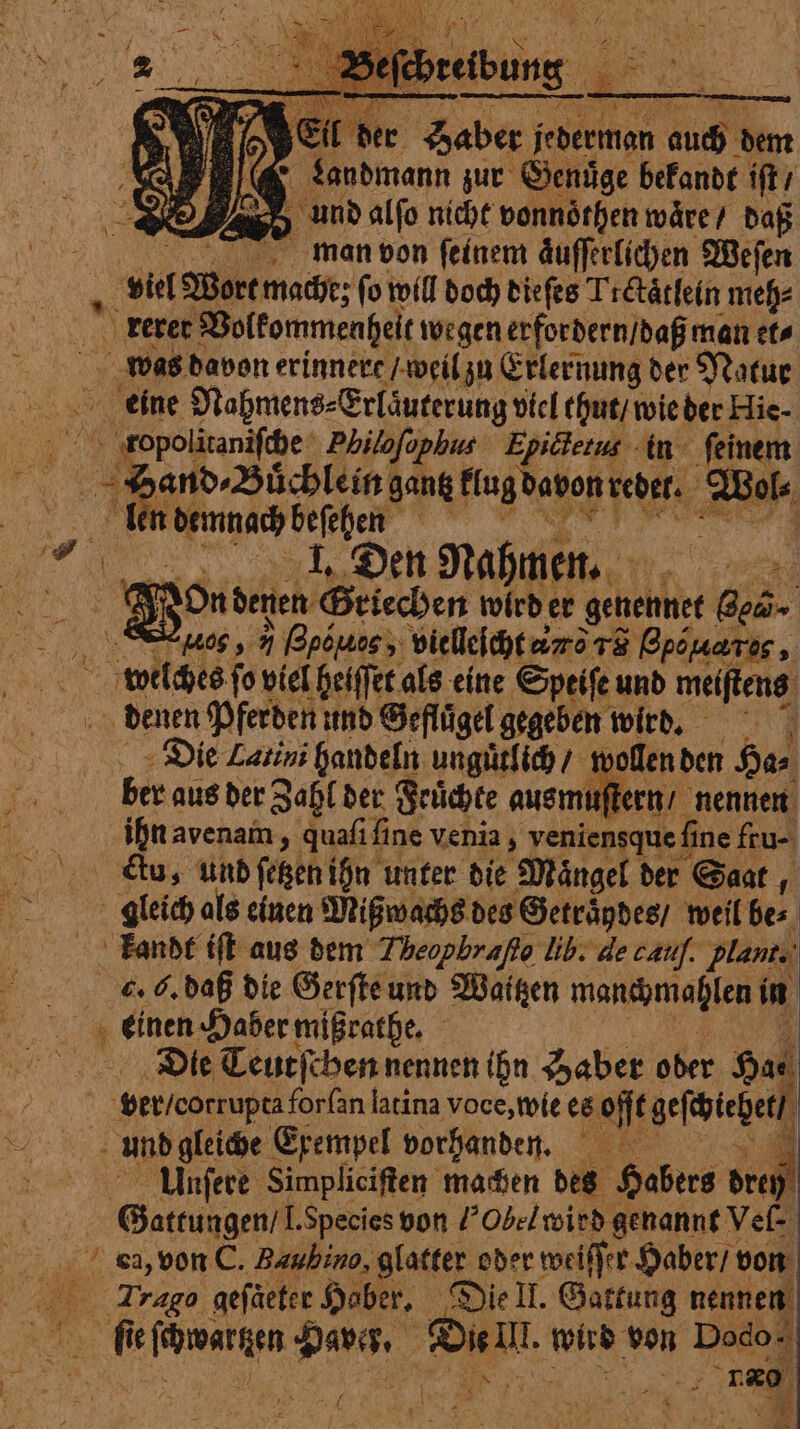 2 Beſchreibung
WEil der Haber jederman auch dem
Landmann zur Genuͤge bekandt iſt/
und alſo nicht vonnoͤthen waͤre/ daß
man von ſeinem aͤuſſerlichen Weſen
viel Wort mache; ſo will doch dieſes Trctaͤtlein meh⸗
rerer Volkommenheit wegen erfordern/daß man et⸗
was davon erinnere/weil zu Erlernung der Natur
eine Nahmens⸗Erlaͤuterung viel thut/ wie der Hie-
ropolitaniſche Philoſophus Epictetus in ſeinem
Hand⸗Buͤchlein gantz klug davon redet. Wol⸗
len demnach beſehen
I. Den Nahmen.
VOn denen Griechen wird er genennet βρῶ-
μος, ἢ βρόμος, vielleicht ἀπὸ τῦ βρόματος,
welches ſo viel heiſſet als eine Speiſe und meiſtens
denen Pferden und Gefluͤgel gegeben wird.
Die Latini handeln unguͤtlich/ wollen den Ha⸗
ber aus der Zahl der Fruͤchte ausmuſtern/ nennen
ihn avenam, quaſi ſine venia, veniensque ſine fru-
ctu, und ſetzen ihn unter die Maͤngel der Saat,
gleich als einen Mißwachs des Getraͤydes/ weil be⸗
kandt iſt aus dem Theophraſto lib. de cauſ. plant.
c. 6. daß die Gerſte und Waitzen manchmahlen in
einen Haber mißrathe.
Die Teutſchen nennen ihn Haber oder Ha⸗
ver/corrupta forſan latina voce, wie es offt geſchiehet/
und gleiche Exempel vorhanden.
Unſere Simpliciſten machen des Habers drey
Gattungen/ I. Species von l'Obel wird genannt Veſ-
ca, von C. Bauhino, glatter oder weiſſer Haber/ von
Trago geſaͤeter Haber. Die II. Gattung nennen
ſie ſchwartzen Haver. Die III. wird von Dodo-
næo